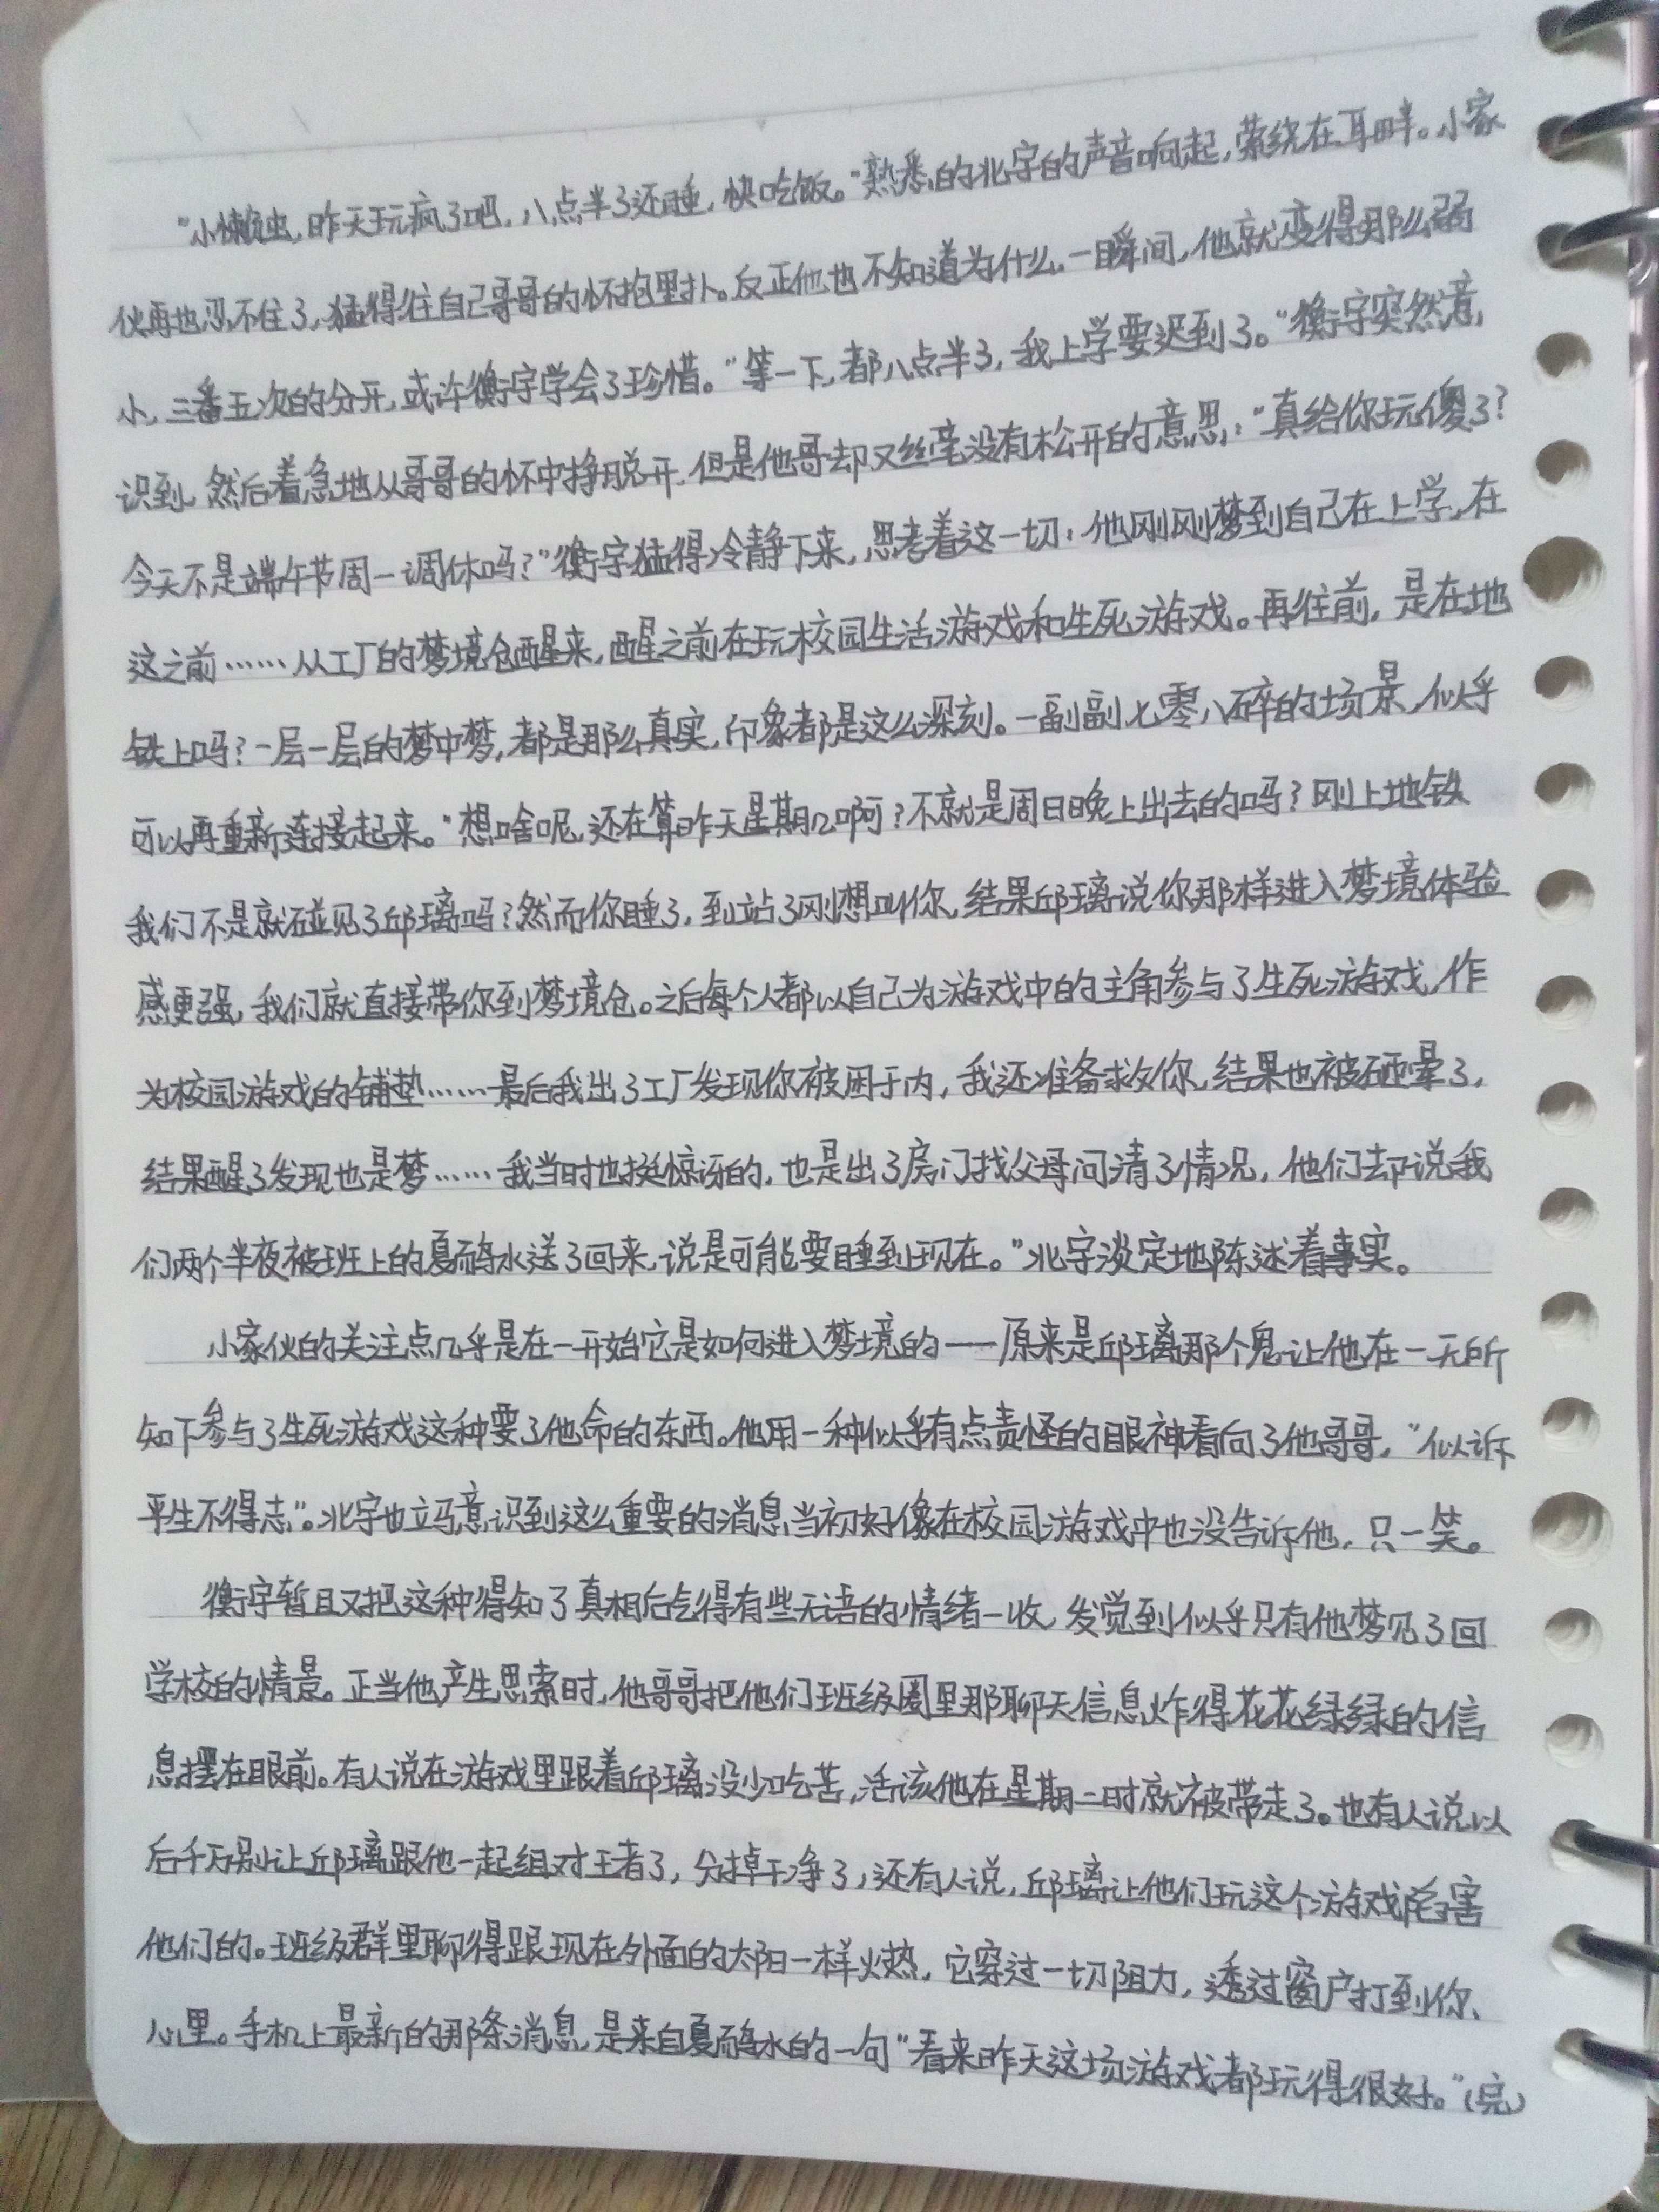 “小懒虫，昨天玩疯了吧，八点半了还睡，快吃饭。”熟悉的北宇的声音响起，萦绕在耳畔。小家
伙再也忍不住了，猛得往自己哥哥的怀抱里扑。反正他也不知道为什么，一瞬间，他就变得那么弱
小，三番五次的分开，或许衡宇学会了珍惜。“等一下，都八点半了，我上学要迟到了。”衡宇突然意
识到，然后着急地从哥哥的怀中挣脱开，但是他哥却又丝毫没有松开的意思：“真给你玩傻了？
今天不是端午节周一调休吗？”衡宇猛得冷静下来，思考着这一切：他刚刚梦到自己在上学，在
这之前……从工厂的梦境仓醒来，醒之前在玩校园生活游戏和生死游戏。再往前，是在地
铁上吗？一层一层的梦中梦，都是那么真实，印象都是这么深刻。一副副七零八碎的场景，似乎
可以再重新连接起来。“想啥呢，还在算昨天星期几啊？不就是周日晚上出去的吗？刚上地铁
我们不是就碰见了邱璃吗？然而你睡了，到站了刚想叫你，结果邱璃说你那样进入梦境体验
感更强，我们就直接带你到梦境仓。之后每个人都以自己为游戏中的主角参与了生死游戏，作
为校园游戏的铺垫……最后我出了工厂发现你被困于内，我还准备救你，结果也被砸晕了，
结果醒了发现也是梦……我当时也挺惊讶的，也是出了房门找父母问清了情况，他们却说我
们两个半夜被班上的夏碲水送了回来，说是可能要睡到现在。”北宇淡定地陈述着事实。
小家伙的关注点几乎是在一开始它是如何进入梦境的——原来是邱璃那个鬼让他在一无所
知下参与了生死游戏这种要了他命的东西。他用一种似乎有点责怪的眼神看向了他哥哥，“似诉
平生不得志”。北宇也立马意识到这么重要的消息当初好像在校园游戏中也没告诉他，只一笑。
衡宇暂且又把这种得知了真相后气得有些无语的情绪一收，发觉到似乎只有他梦见了回
学校的情景。正当他产生思索时，他哥哥把他们班级圈里那聊天信息炸得花花绿绿的信
息摆在眼前。有人说在游戏里跟着邱璃没少吃苦，活该他在星期二时就被带走了。也有人说以
后千万别让邱璃跟他一起组对王者了，分掉干净了，还有人说，邱璃让他们玩这个游戏啥害
他们的。班级群里聊得跟现在外面的太阳一样火热，它穿过一切阻力，透过窗户打到你、
心里。手机上最新的那条消息，是来自夏碲水的一句“看来昨天这场游戏都玩得很好。”（完）